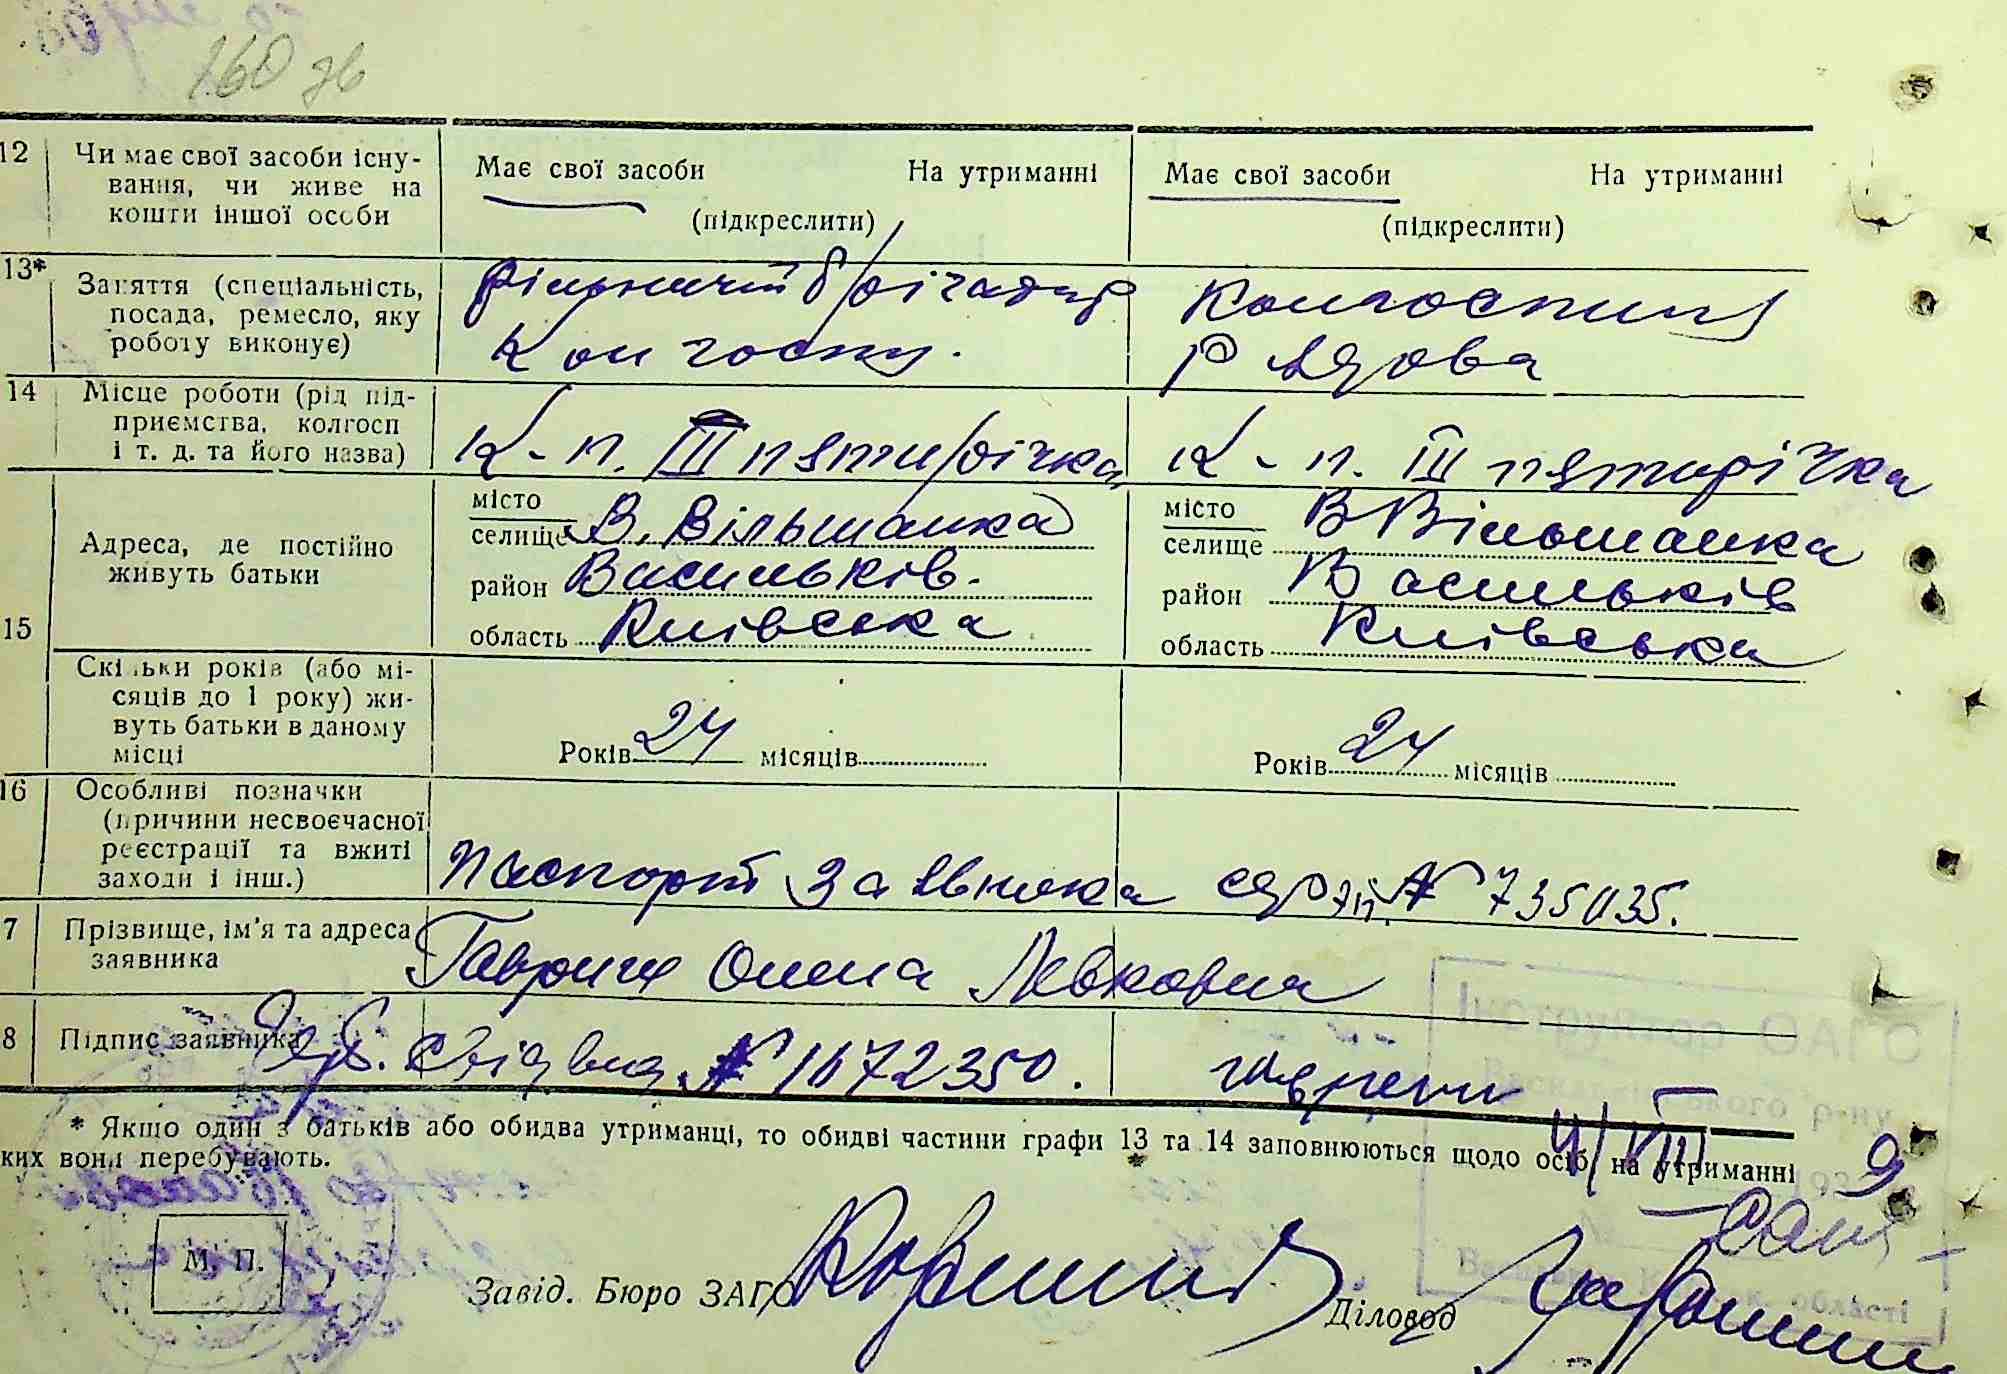 160 зв
12 Чи має свої засоби існу-
вання, чи живе на
кошти іншої особи
Має свої засоби На утриманні
(підкреслити)
Має свої засоби На утриманні
(підкреслити)
13* Заняття (спеціальність,
посада, ремесло, яку
роботу виконує)
Рільничий бригадир
Колгоспу.
Колгоспниця
Рядова
14 Місце роботи (рід під-
приємства, колгосп
і т. д. та його назва)
К-п. III пятирічка
К-п. III пятирічка
15 Адреса, де постійно
живуть батьки
місто
селище В. Вільшанка
район Васильків.
область Київська
місто
селище В Вільшанка
район Васильків
область Київська
Скільки років (або мі-
сяців до 1 року) жи-
вуть батьки в даному
місці
Років 24 місяців
Років 24 місяців
16 Особливі позначки
(причини несвоєчасної
реєстрації та вжиті
заходи і інш.)
Паспорт заявника серія № 735035.
7 Прізвище, ім'я та адреса
заявника
Гавриш Олена Левковна
8 Підпис заявника
№ 1672350.
* Якщо один з батьків або обидва утриманці, то обидві частини графи 13 та 14 заповнюються щодо осіб, на утриманні
ких вони перебувають.
Інструктор ОАГС
Васильківського р-ну
4/VIII 193 9
області
М. П.
Завід. Бюро ЗАГС
Діловод